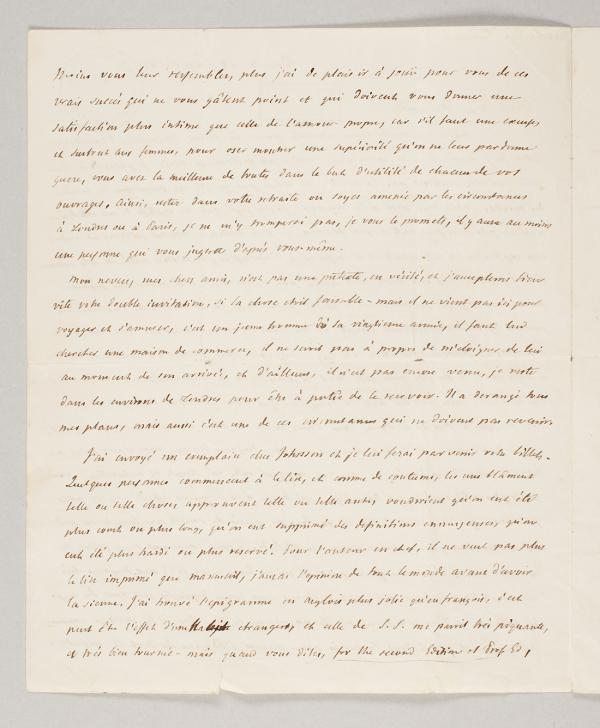 Moins vous leur ressemblez, plus j'ai de plaisir à jouir pour vous de ces
vrais succès qui ne vous gâtent point et qui doivent vous donner une
satisfaction plus intime que celle de l'amour propre, car s'il faut une excuse,
et surtout aux femmes, pour oser montrer une supériorité qu'on ne leur pardonne
guere, vous avez la meilleure de toutes dans le but d'utilité de chacun de vos
ouvrages. Ainsi, restez dans votre retraite ou soyez amenée par les circonstances
à Londres ou à Paris, je ne m'y tromperai pas, je vous le promets, il y aura au moins
une personne qui vous jugera d'après vous-même.
Mon neveu, mes chers amis, n'est pas une prétexte, en vérité, et j'accepterais bien
vite votre double invitation, si la chose etoit faisable - mais il ne vient pas ici pour
voyager et s'amuser, c'est un jeune homme sa vingtieme année, il faut lui
chercher une maison de commerce, il ne seroit pas à propos de m'eloigner de lui
au moment de son arrivée, et d'ailleurs, il n'est pas encore venu, je reste
dans les environs de Londres pour être à portée de le recevoir. Il a derangé tous
mes plans, mais aussi c'est une de ces circonstances qui ne doivent pas revenir.
J'ai envoyé un exemplaire chez Johnson et je lui ferai parvenir votre billet.
Quelques personnes commencent à le lire, et comme de coutume, les uns blâment
telle ou telle chose, approuvent telle ou telle autre, voudroient qu'on eut été
plus court ou plus long, qu'on eut supprimé des definitions ennuyeuses, qu'on
eut été plus hardi ou plus reservé. Pour l'auteur en chef, il ne veut pas plus
le lire imprimé que manuscrit, j'aurai l'opinion de tout le monde avant d'avoir
la sienne. J'ai trouvé l'epigramme en anglois plus jolie qu'en françois, c'est
peut être l'effet d'une etrangere, et celle de S. S. me paroit très piquante,
et très bien tournée - mais quand vous dites, for the second Edition et Prof Ed,